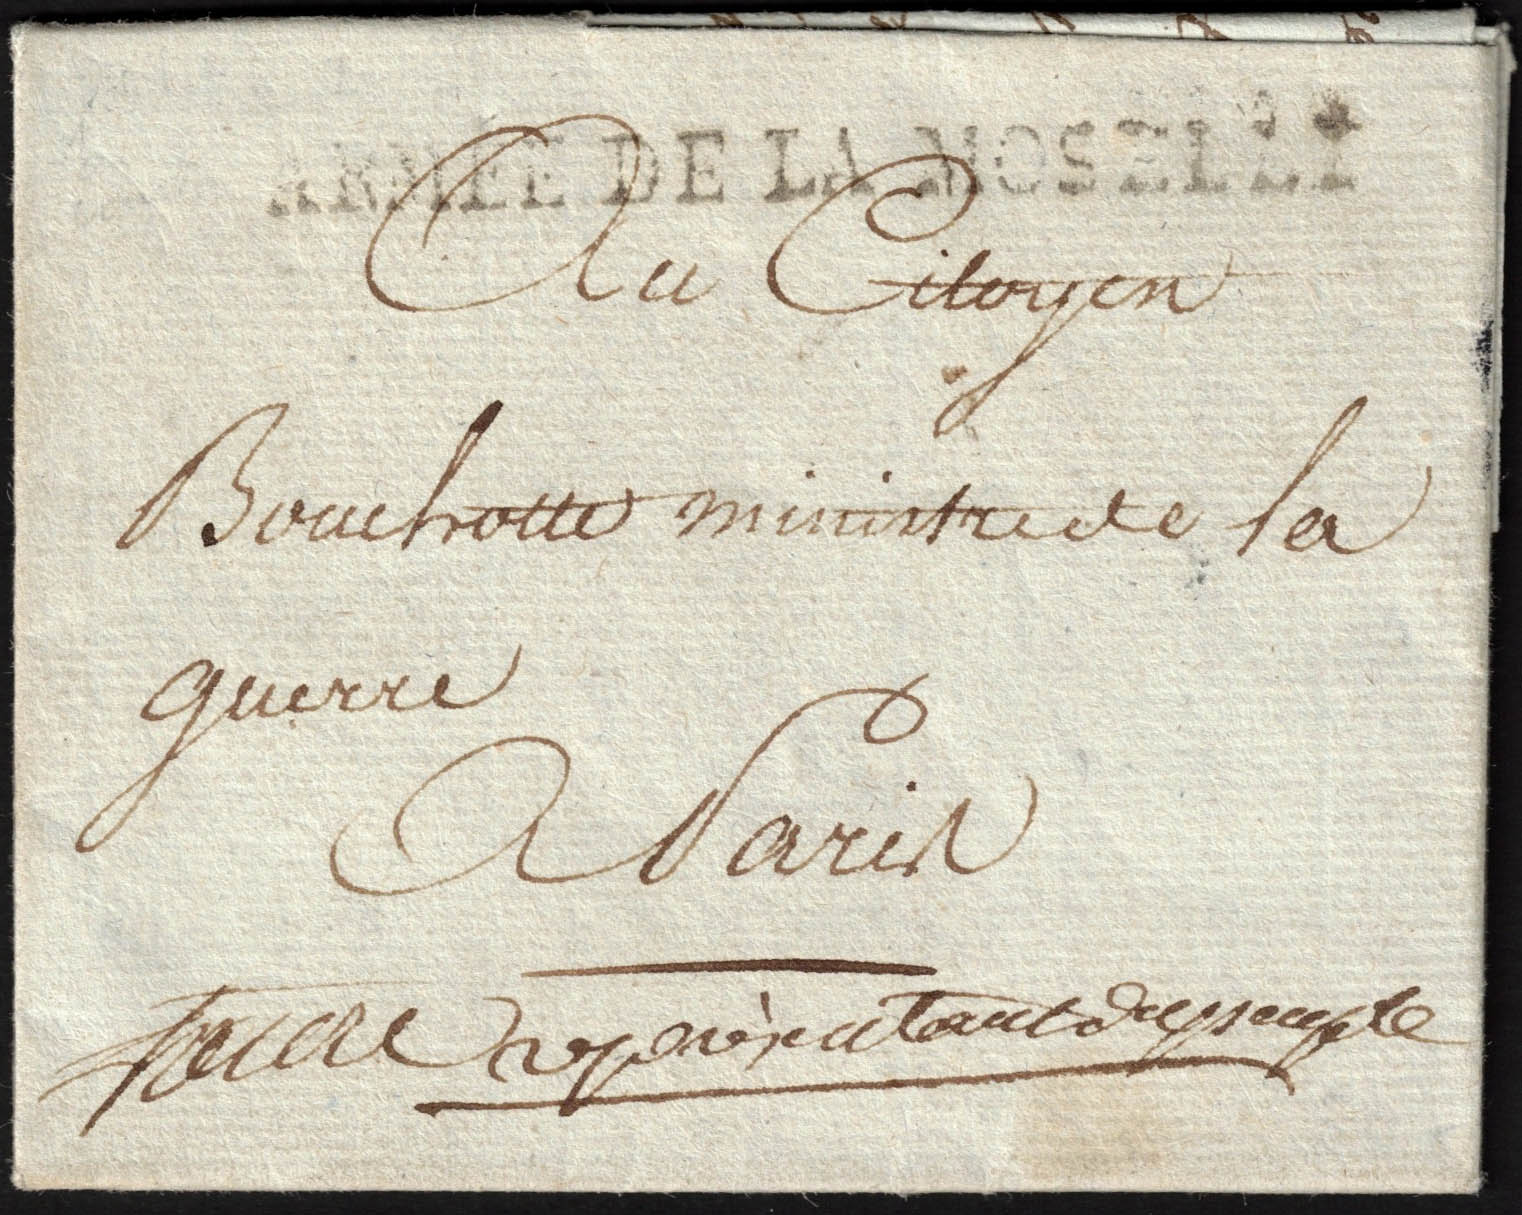 ARMÉE DE LA MOSELLE
Au Citoyen
Bouchotte ministre de la
guerre
A Paris
représentant du peuple